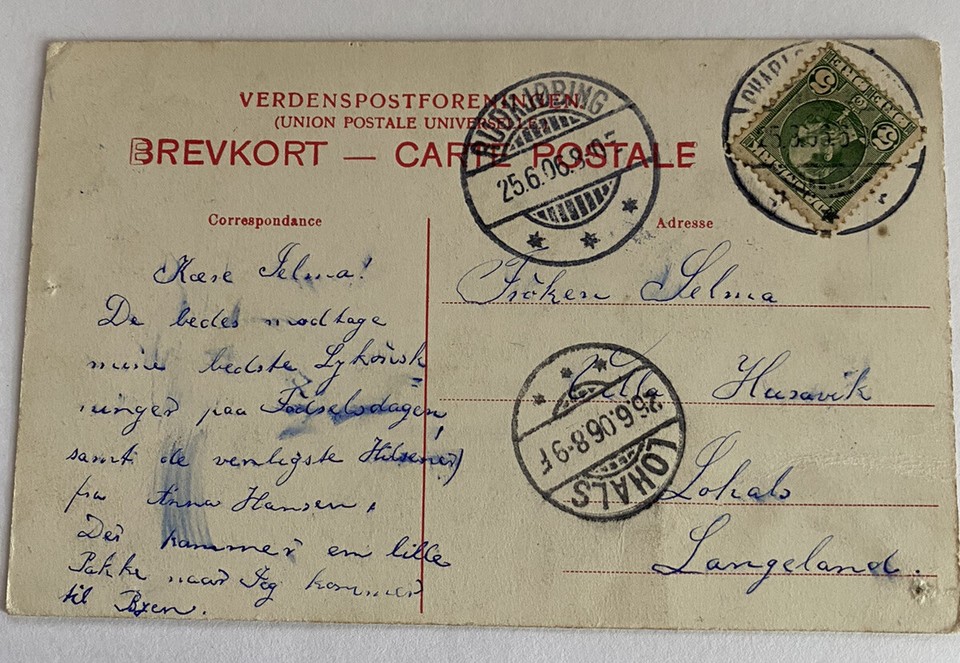 VERDENSPOSTFORENINGEN
(UNION POSTALE UNIVERSELLE)
BREVKORT — CARTE POSTALE
RUDKJØBING
25.6.06.8-9 F
25.6.06
5
5
Correspondance
Kære Selma!
De bedes modtage
mine bedste Lykønsk
ninger paa Fødselsdagen,
samt de venligste Hilsener
fra Anna Hansen.
Der kommer en lille
Pakke naar Jeg kommer
til Byen.
Adresse
Fröken Selma
Villa Husavik
Lohals
Langeland.
25.6.06.8-9 F
LOHALS